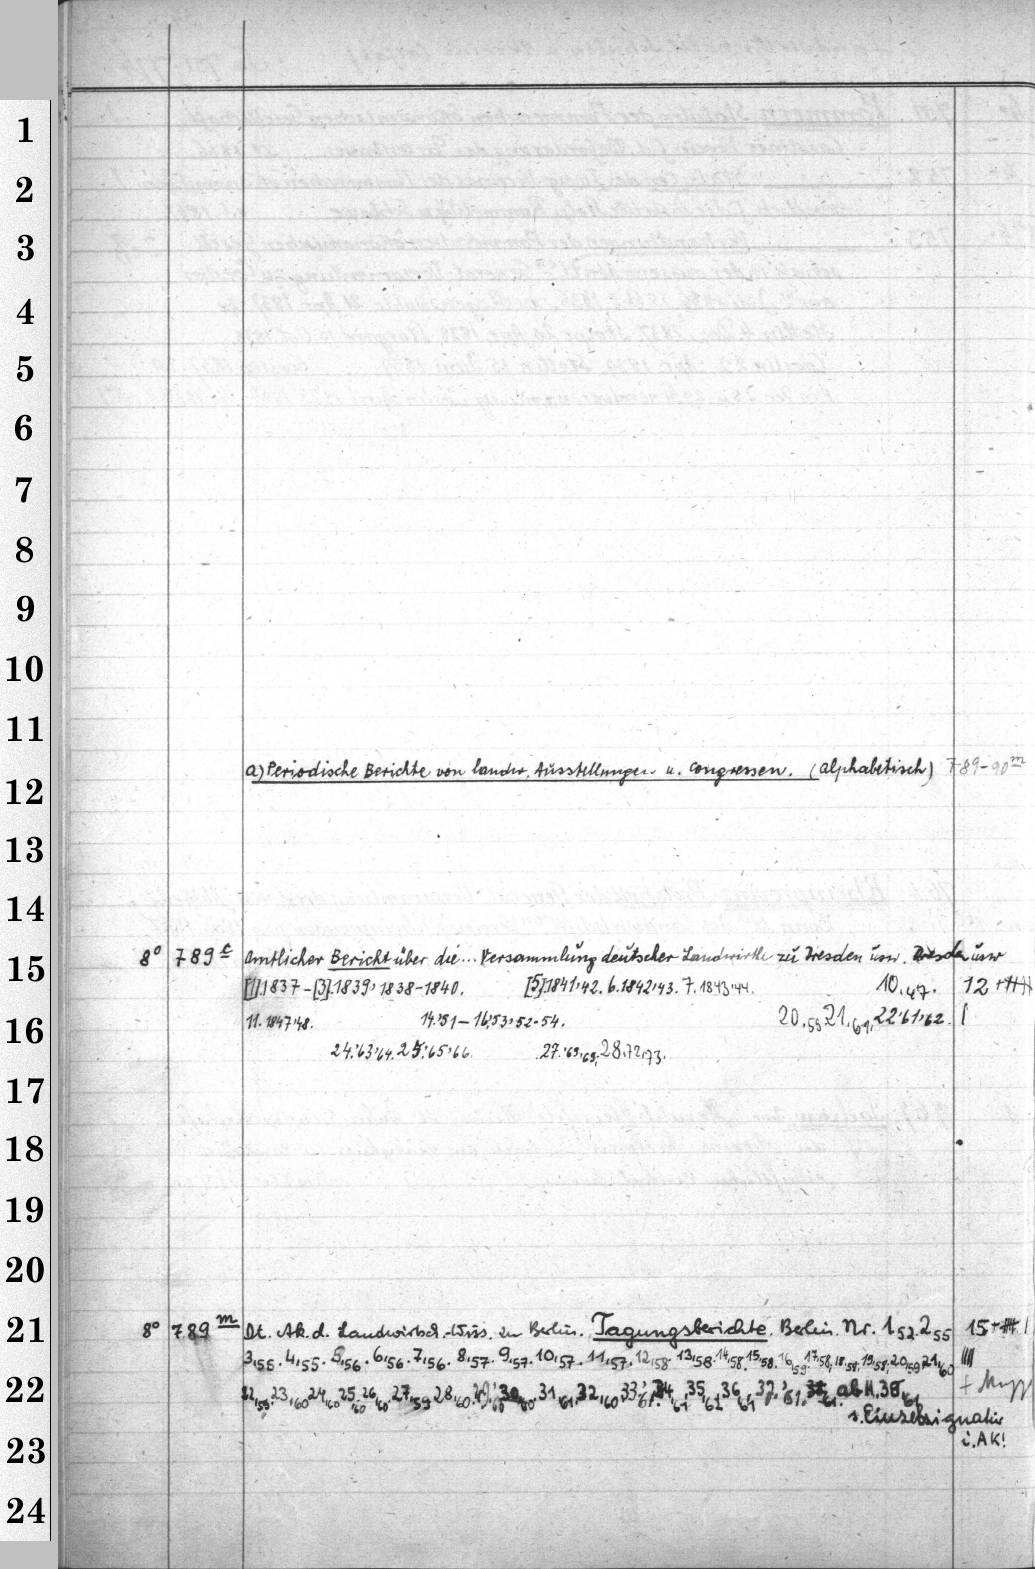 1
2
3
4
5
6
7
8
9
10
11
a) Periodische Berichte von landw. Ausstellungen u. Congressen. (alphabetisch) 789-90m
12
13
14
15
8° 789c Amtlicher Bericht über die... Versammlung deutscher Landwirthe zu Dresden usw. Dresden usw
[1].1837-[3].1839, 1838-1840. [5]1841,42. 6.1842,43. 7.1843,44. 10,47. 12
16
11.1847,48. 14.51-16,53,52-54. 20,58 21,61, 22,61,62.
24.63,64. 25.65,66. 27.69, 28.72,73.
17
18
19
20
21
8° 789m Dt. Ak. d. Landwirtsch.-Wiss. zu Berlin. Tagungsberichte. Berlin. Nr. 1,52. 2,55 15
3,55. 4,55. 5,56. 6,56. 7,56. 8,57. 9,57. 10,57. 11,57. 12,58. 13,58. 14,58. 15,58. 16,59. 17,58, 18,58, 19,58, 20,59, 21,60
22
22,59. 23,60 24,60 25,60 26,60 27,59 28,60 30,60 31,61, 32,60 35,61 36,61 ab H. 38,61
s. Einzelsignatur
23
i. AK!
24